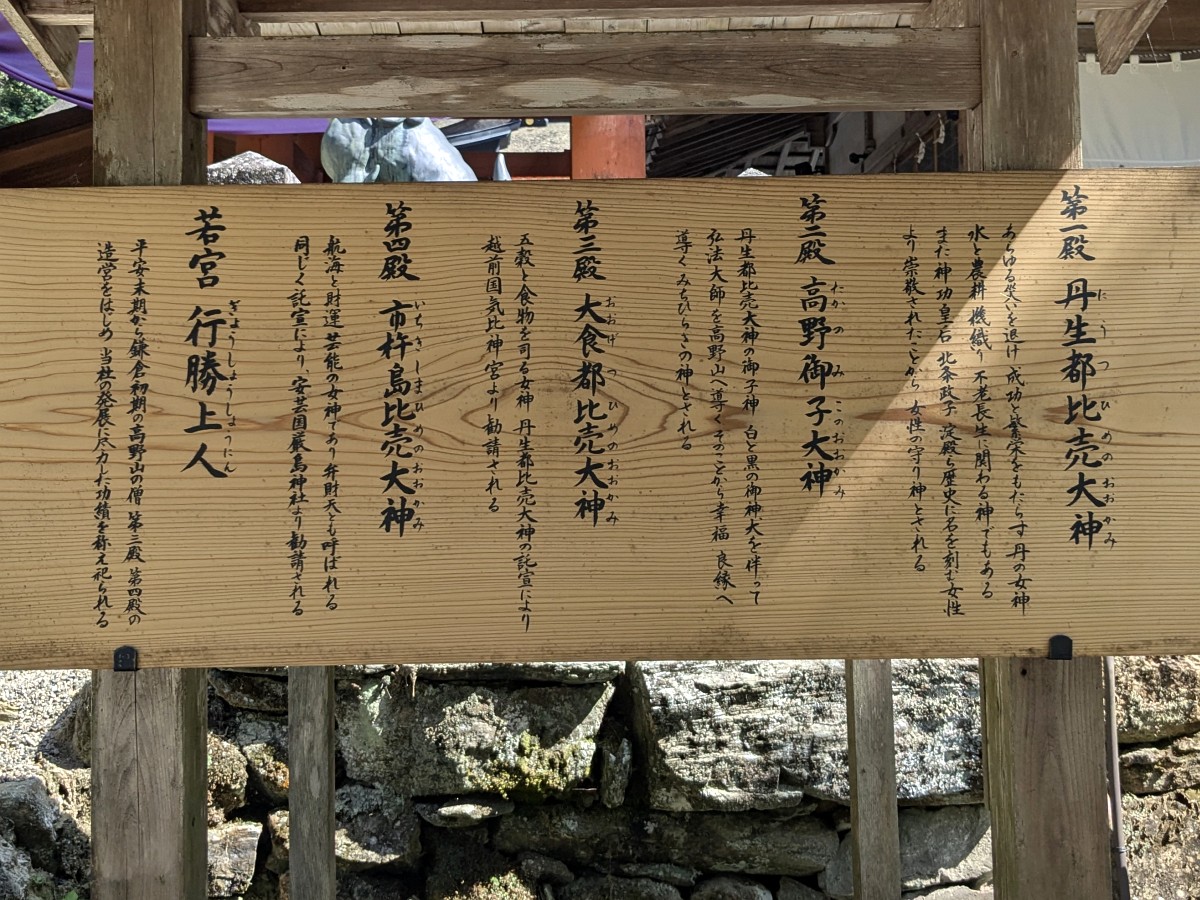 第一殿 丹生都比売大神
にうつひめのおおかみ
あらゆる災いを退け 成功と繁栄をもたらす 丹の女神
水と農耕 機織り 不老長生に関わる神でもある
また神功皇后 北条政子 淀殿ら歴史に名を刻む女性
より崇敬されたことから 女性の守り神とされる
第二殿 高野御子大神
たかのみこのおおかみ
丹生都比売大神の御子神 白と黒の御神犬を伴って
弘法大師を高野山へ導く そのことから幸福 良縁へ
導く みちひらきの神とされる
第三殿 大食都比売大神
おおげつひめのおおかみ
五穀と食物を司る女神 丹生都比売大神の託宣により
越前国気比神宮より勧請される
第四殿 市杵島比売大神
いちきしまひめのおおかみ
航海と財運 芸能の女神であり 弁財天とも呼ばれる
同じく託宣により、安芸国厳島神社より勧請される
若宮 行勝上人
ぎょうしょうしょうにん
平安末期から鎌倉初期の高野山の僧 第三殿 第四殿の
造営をはじめ 当社の発展に尽力した功績を称え祀られる